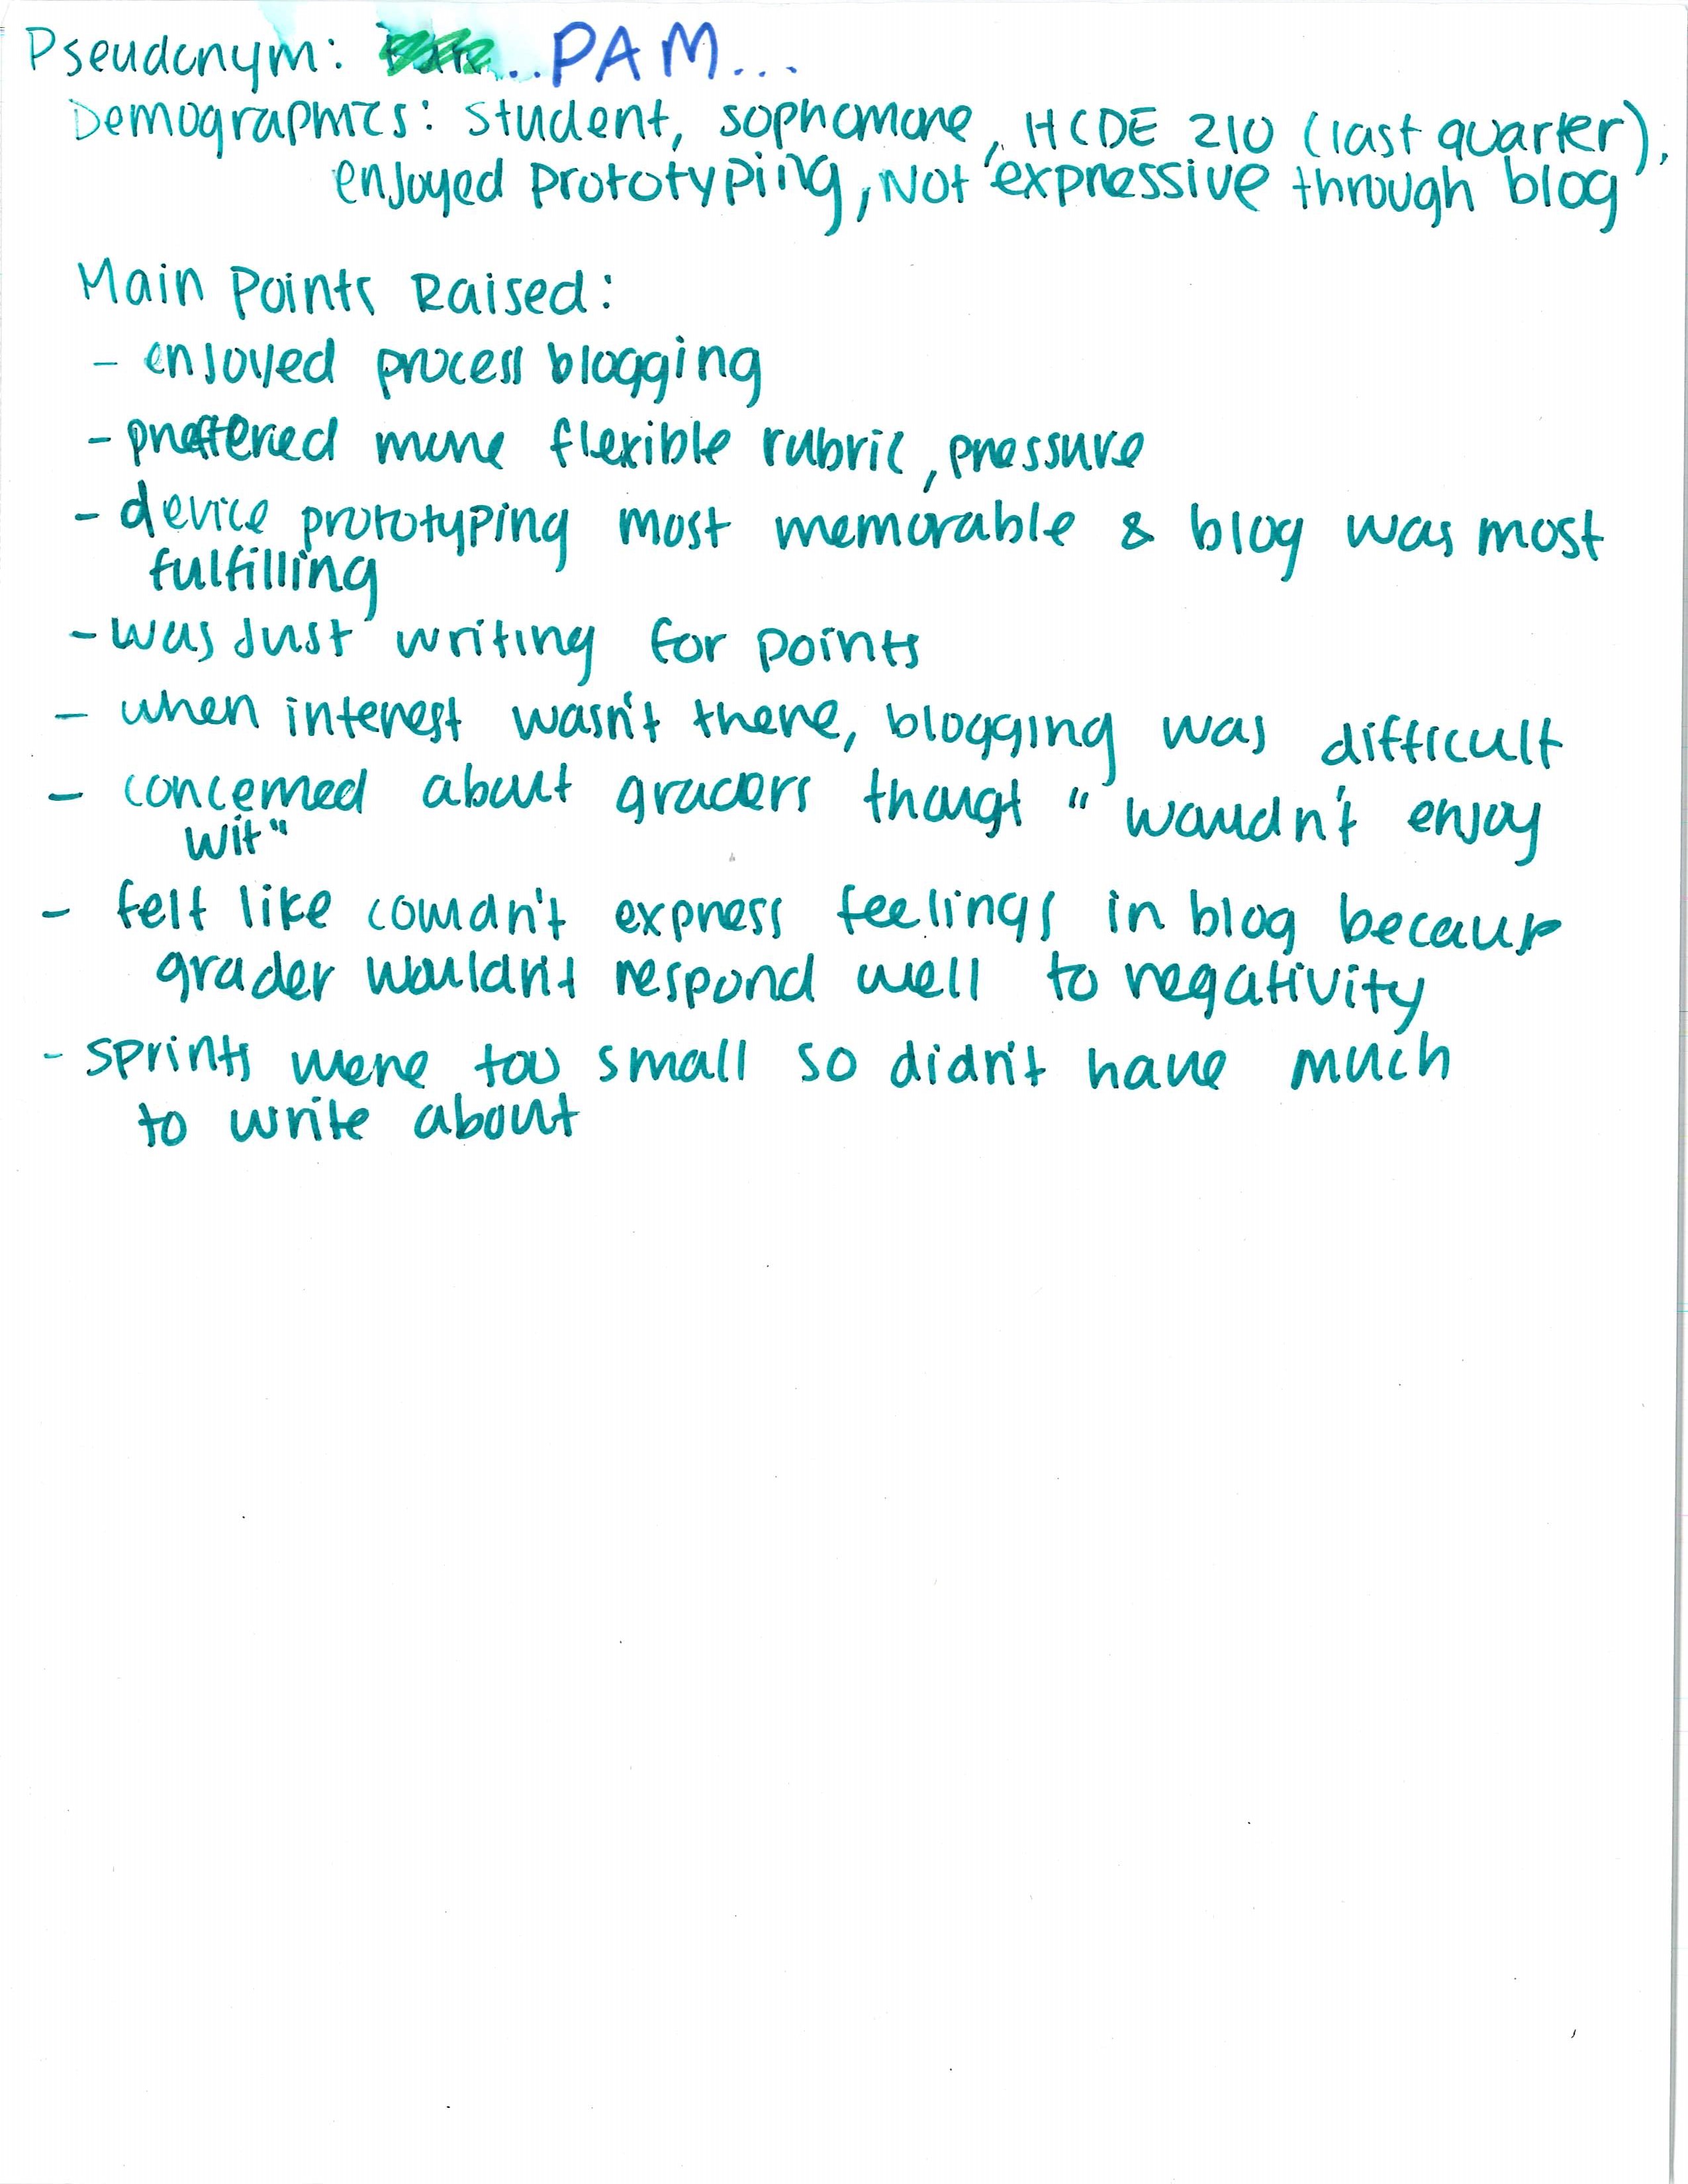 Pseudonym: ..PAM...
Demographics: student, sophomore, HCDE 210 (last quarter),
enjoyed prototyping, Not expressive through blog
Main Points Raised:
- enjoyed process blogging
- preffered more flexible rubric, pressure
- device prototyping most memorable & blog was most
fulfilling
- was Just writing for points
- when interest wasn't there, blogging was difficult
- concerned about graders thougt "wouldn't enjoy
wit"
- felt like couldn't express feelings in blog because
grader wouldn't respond well to negativity
- sprints were too small so didn't have much
to write about